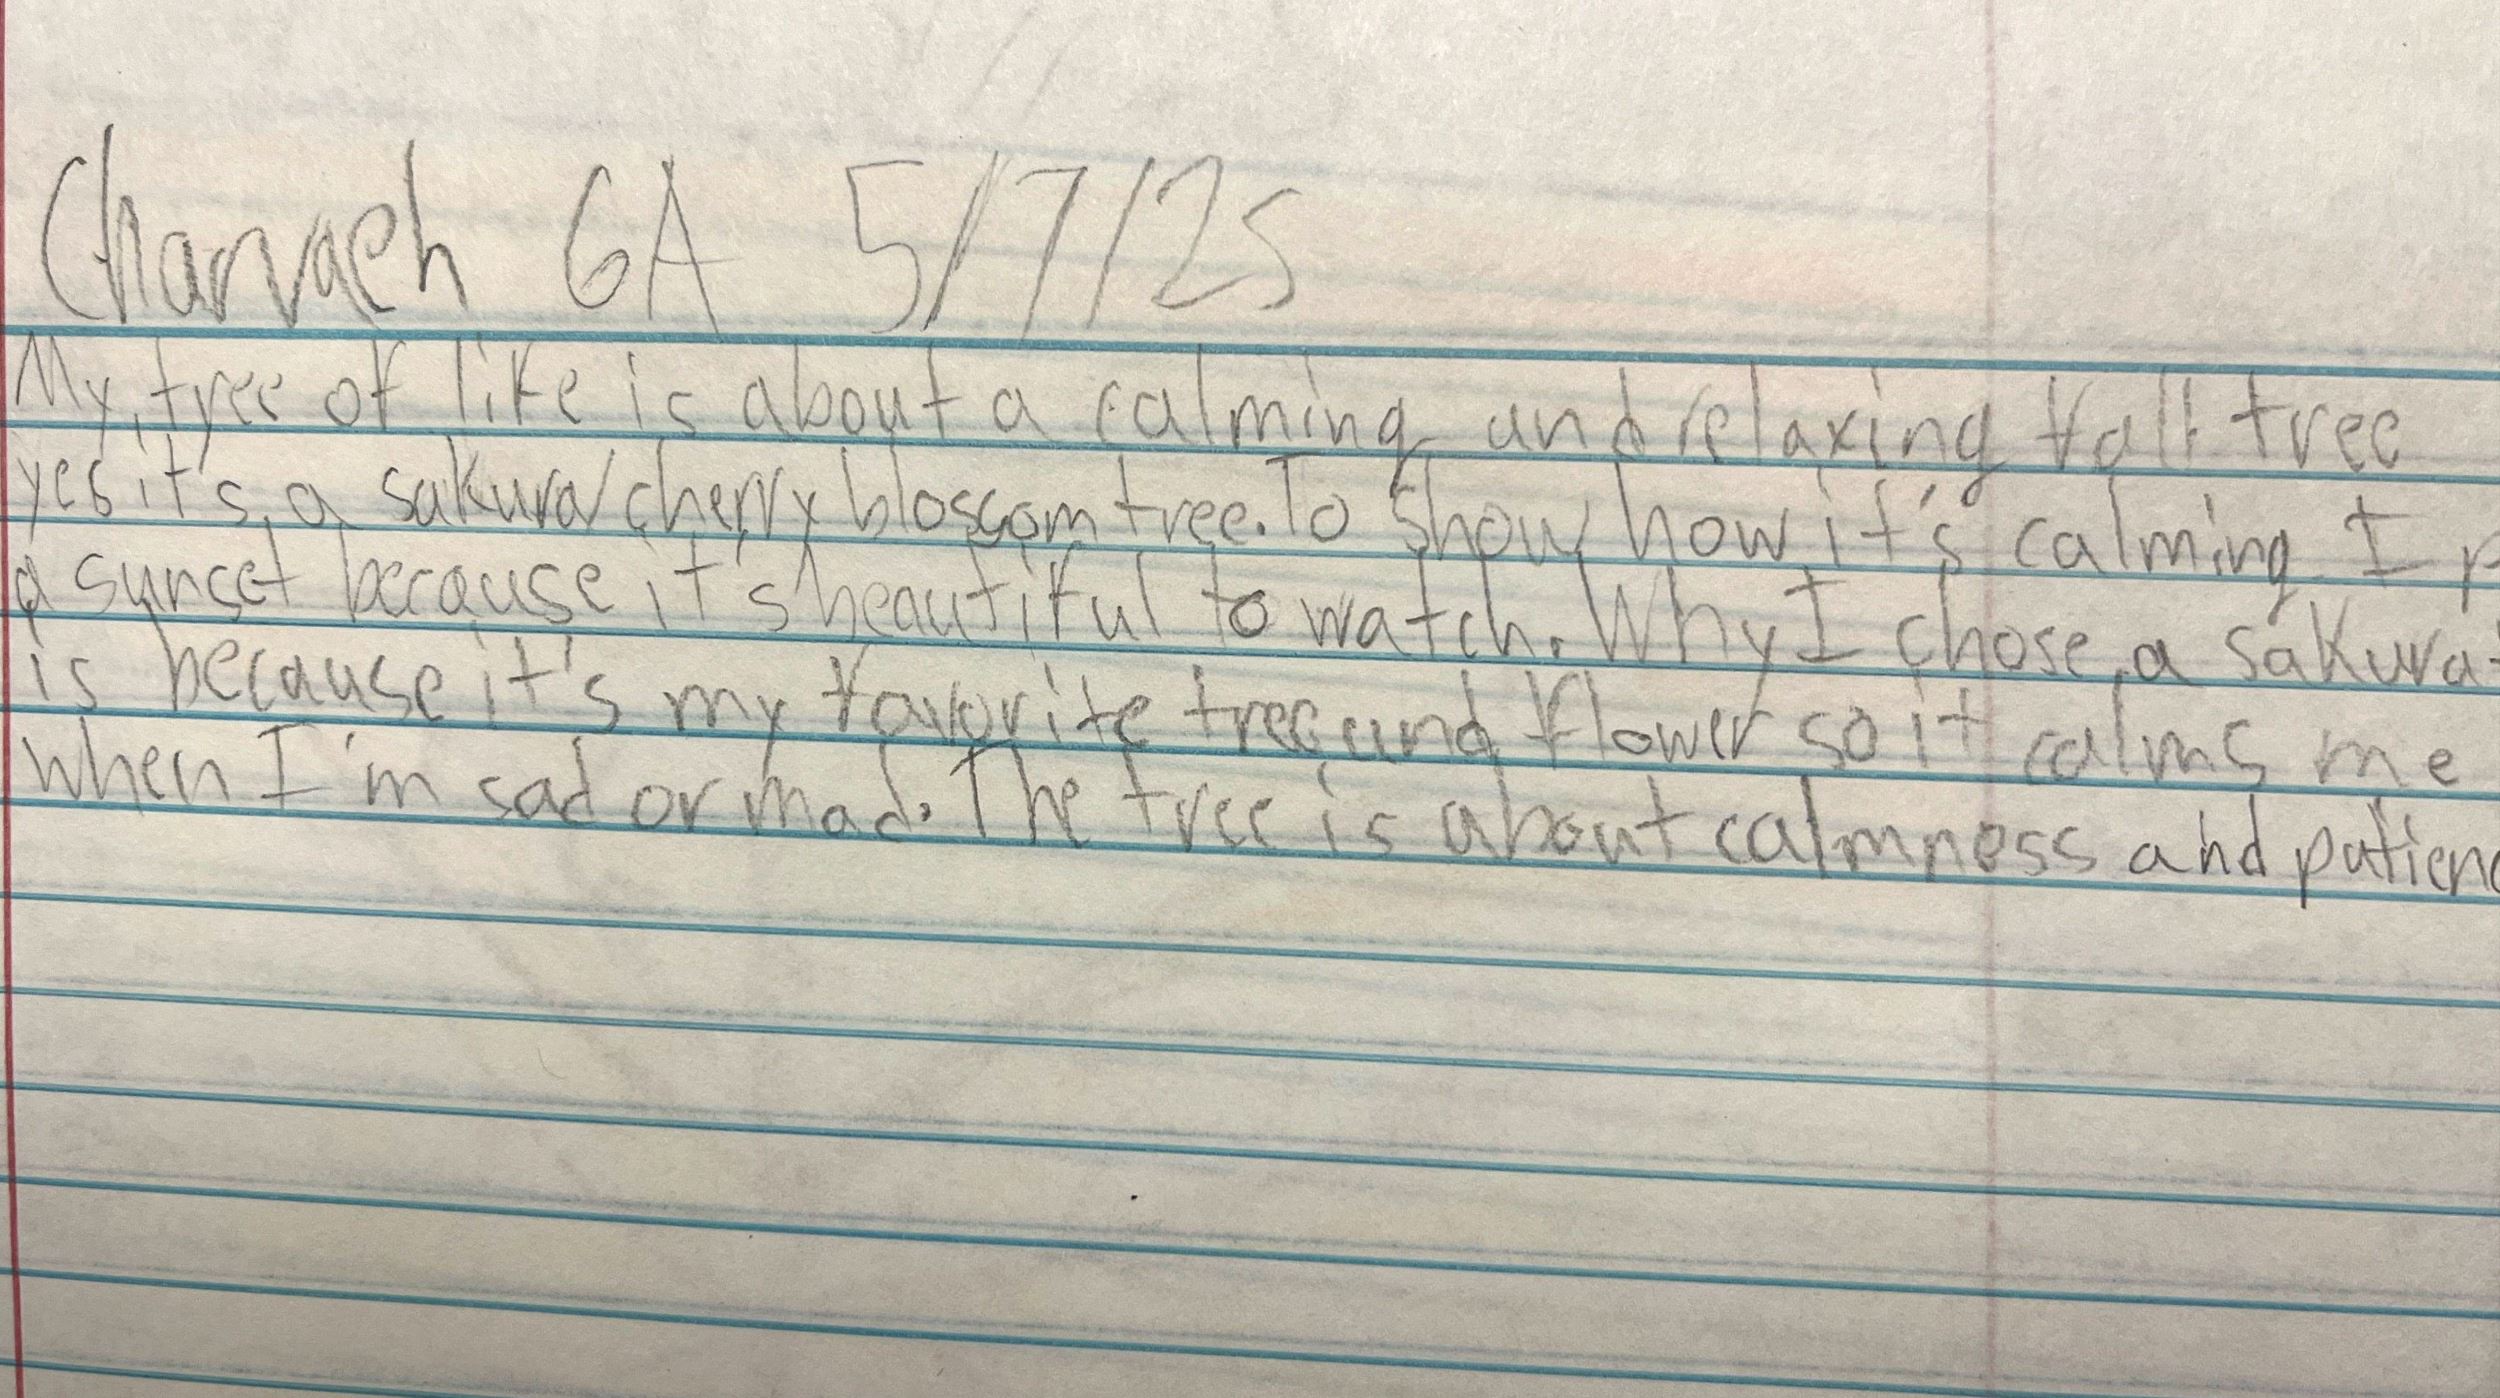 Charvaeh 6A 5/7/25
My tree of life is about a calming and relaxing fall tree
yes it's a sakura/cherry blossom tree. To show how it's calming I
a sunset because it's beautiful to watch. Why I chose a sakura
is because it's my favorite tree and flower so it calms me
when I'm sad or mad. The tree is about calmness and patienc